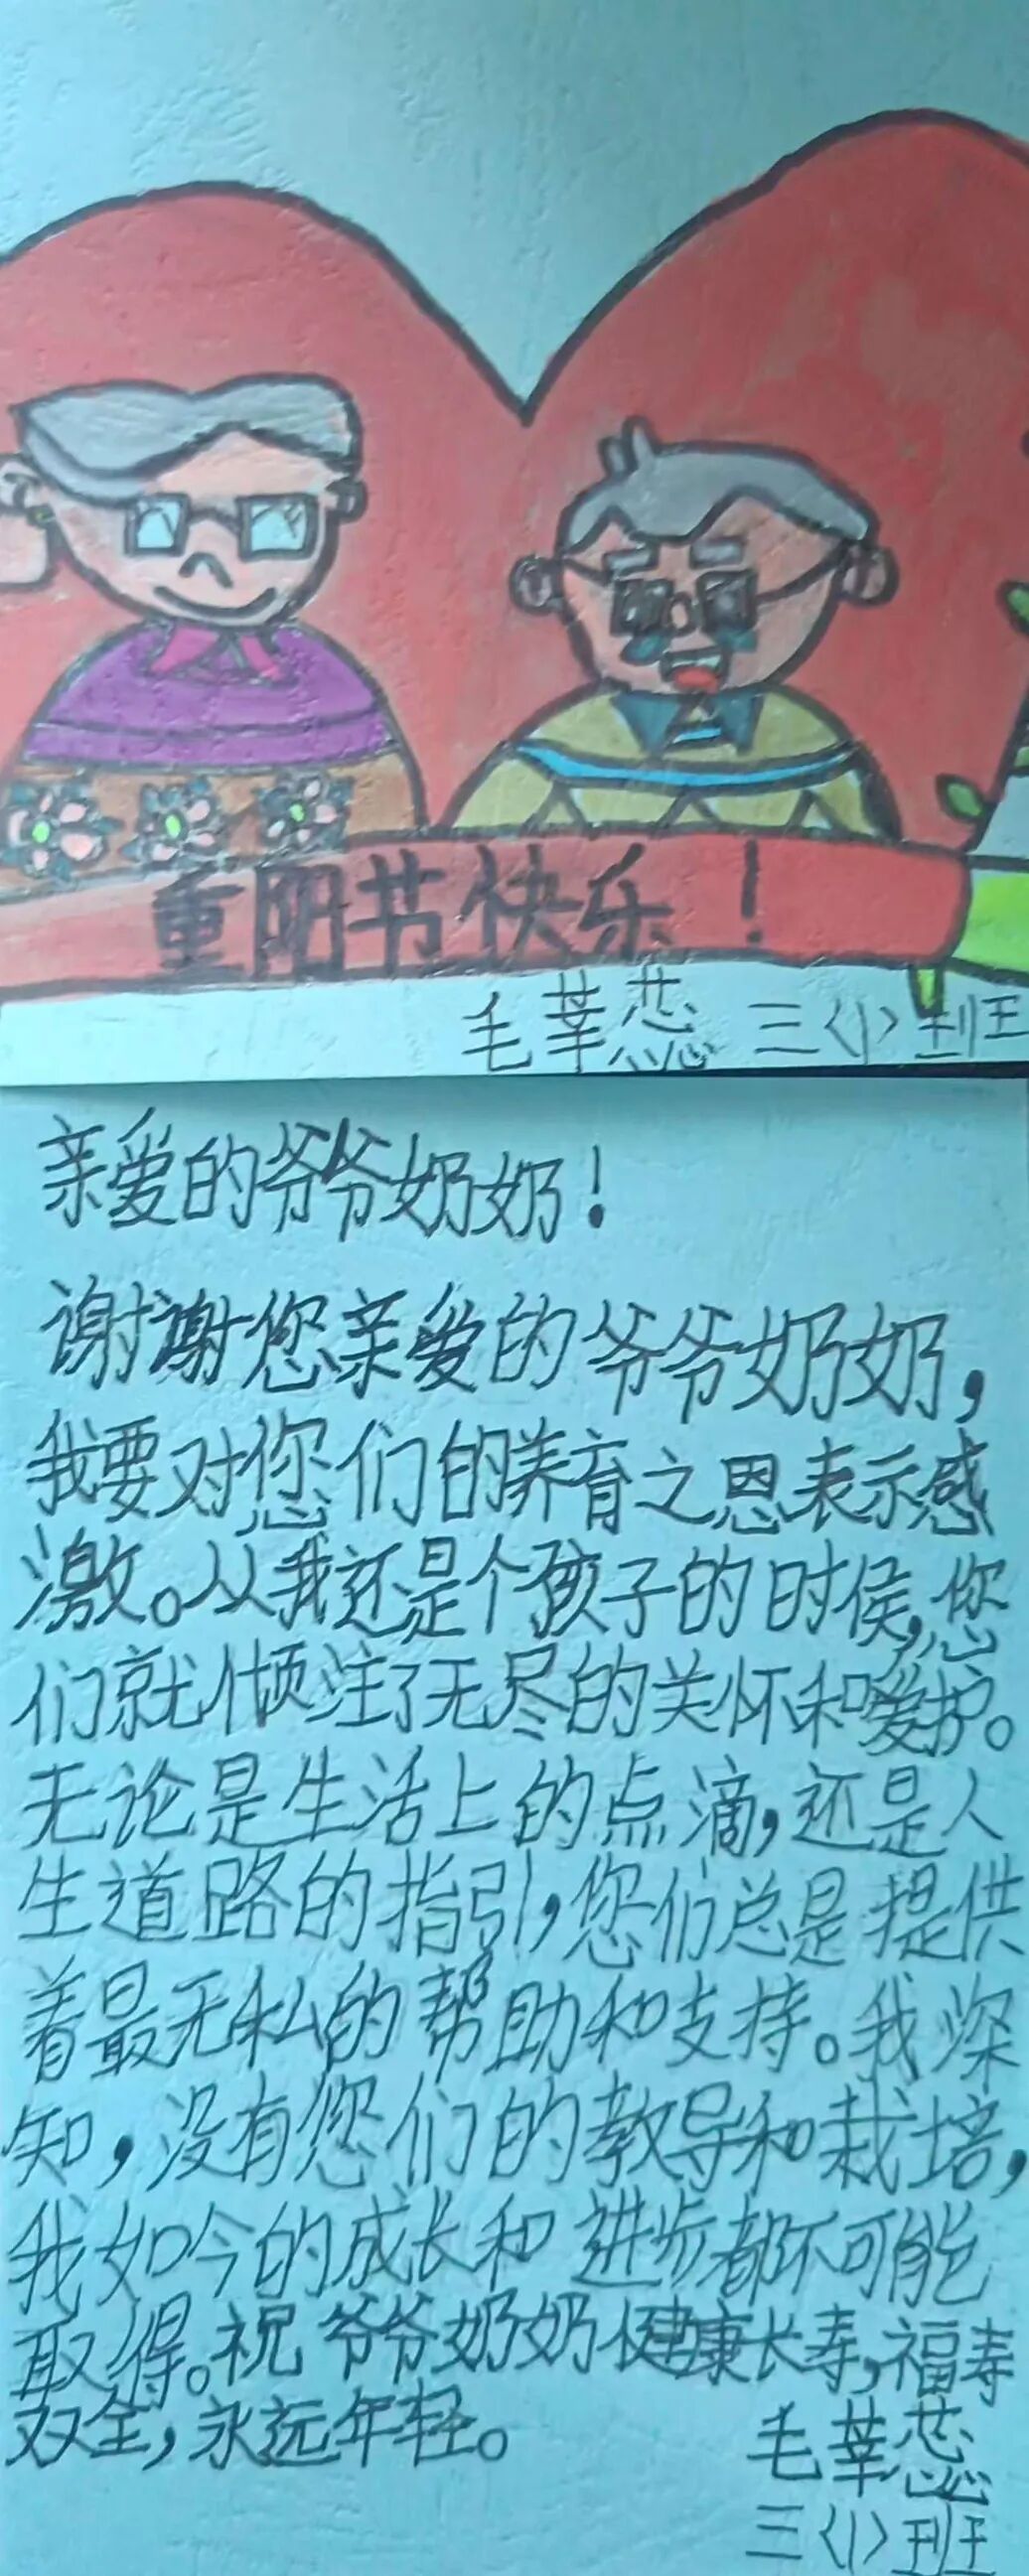 重阳节快乐！
毛莘蕊 三〈1〉班
亲爱的爷爷奶奶！
谢谢您亲爱的爷爷奶奶，
我要对您们的养育之恩表示感
激。从我还是个孩子的时侯，您
们就倾注了无尽的关怀和爱护。
无论是生活上的点滴，还是人
生道路的指引，您们总是提供
着最无私的帮助和支持。我深
知，没有您们的教导和栽培，
我如今的成长和进步都不可能
取得。祝爷爷奶奶健康长寿，福寿
双全，永远年轻。
毛莘蕊
三〈1〉班